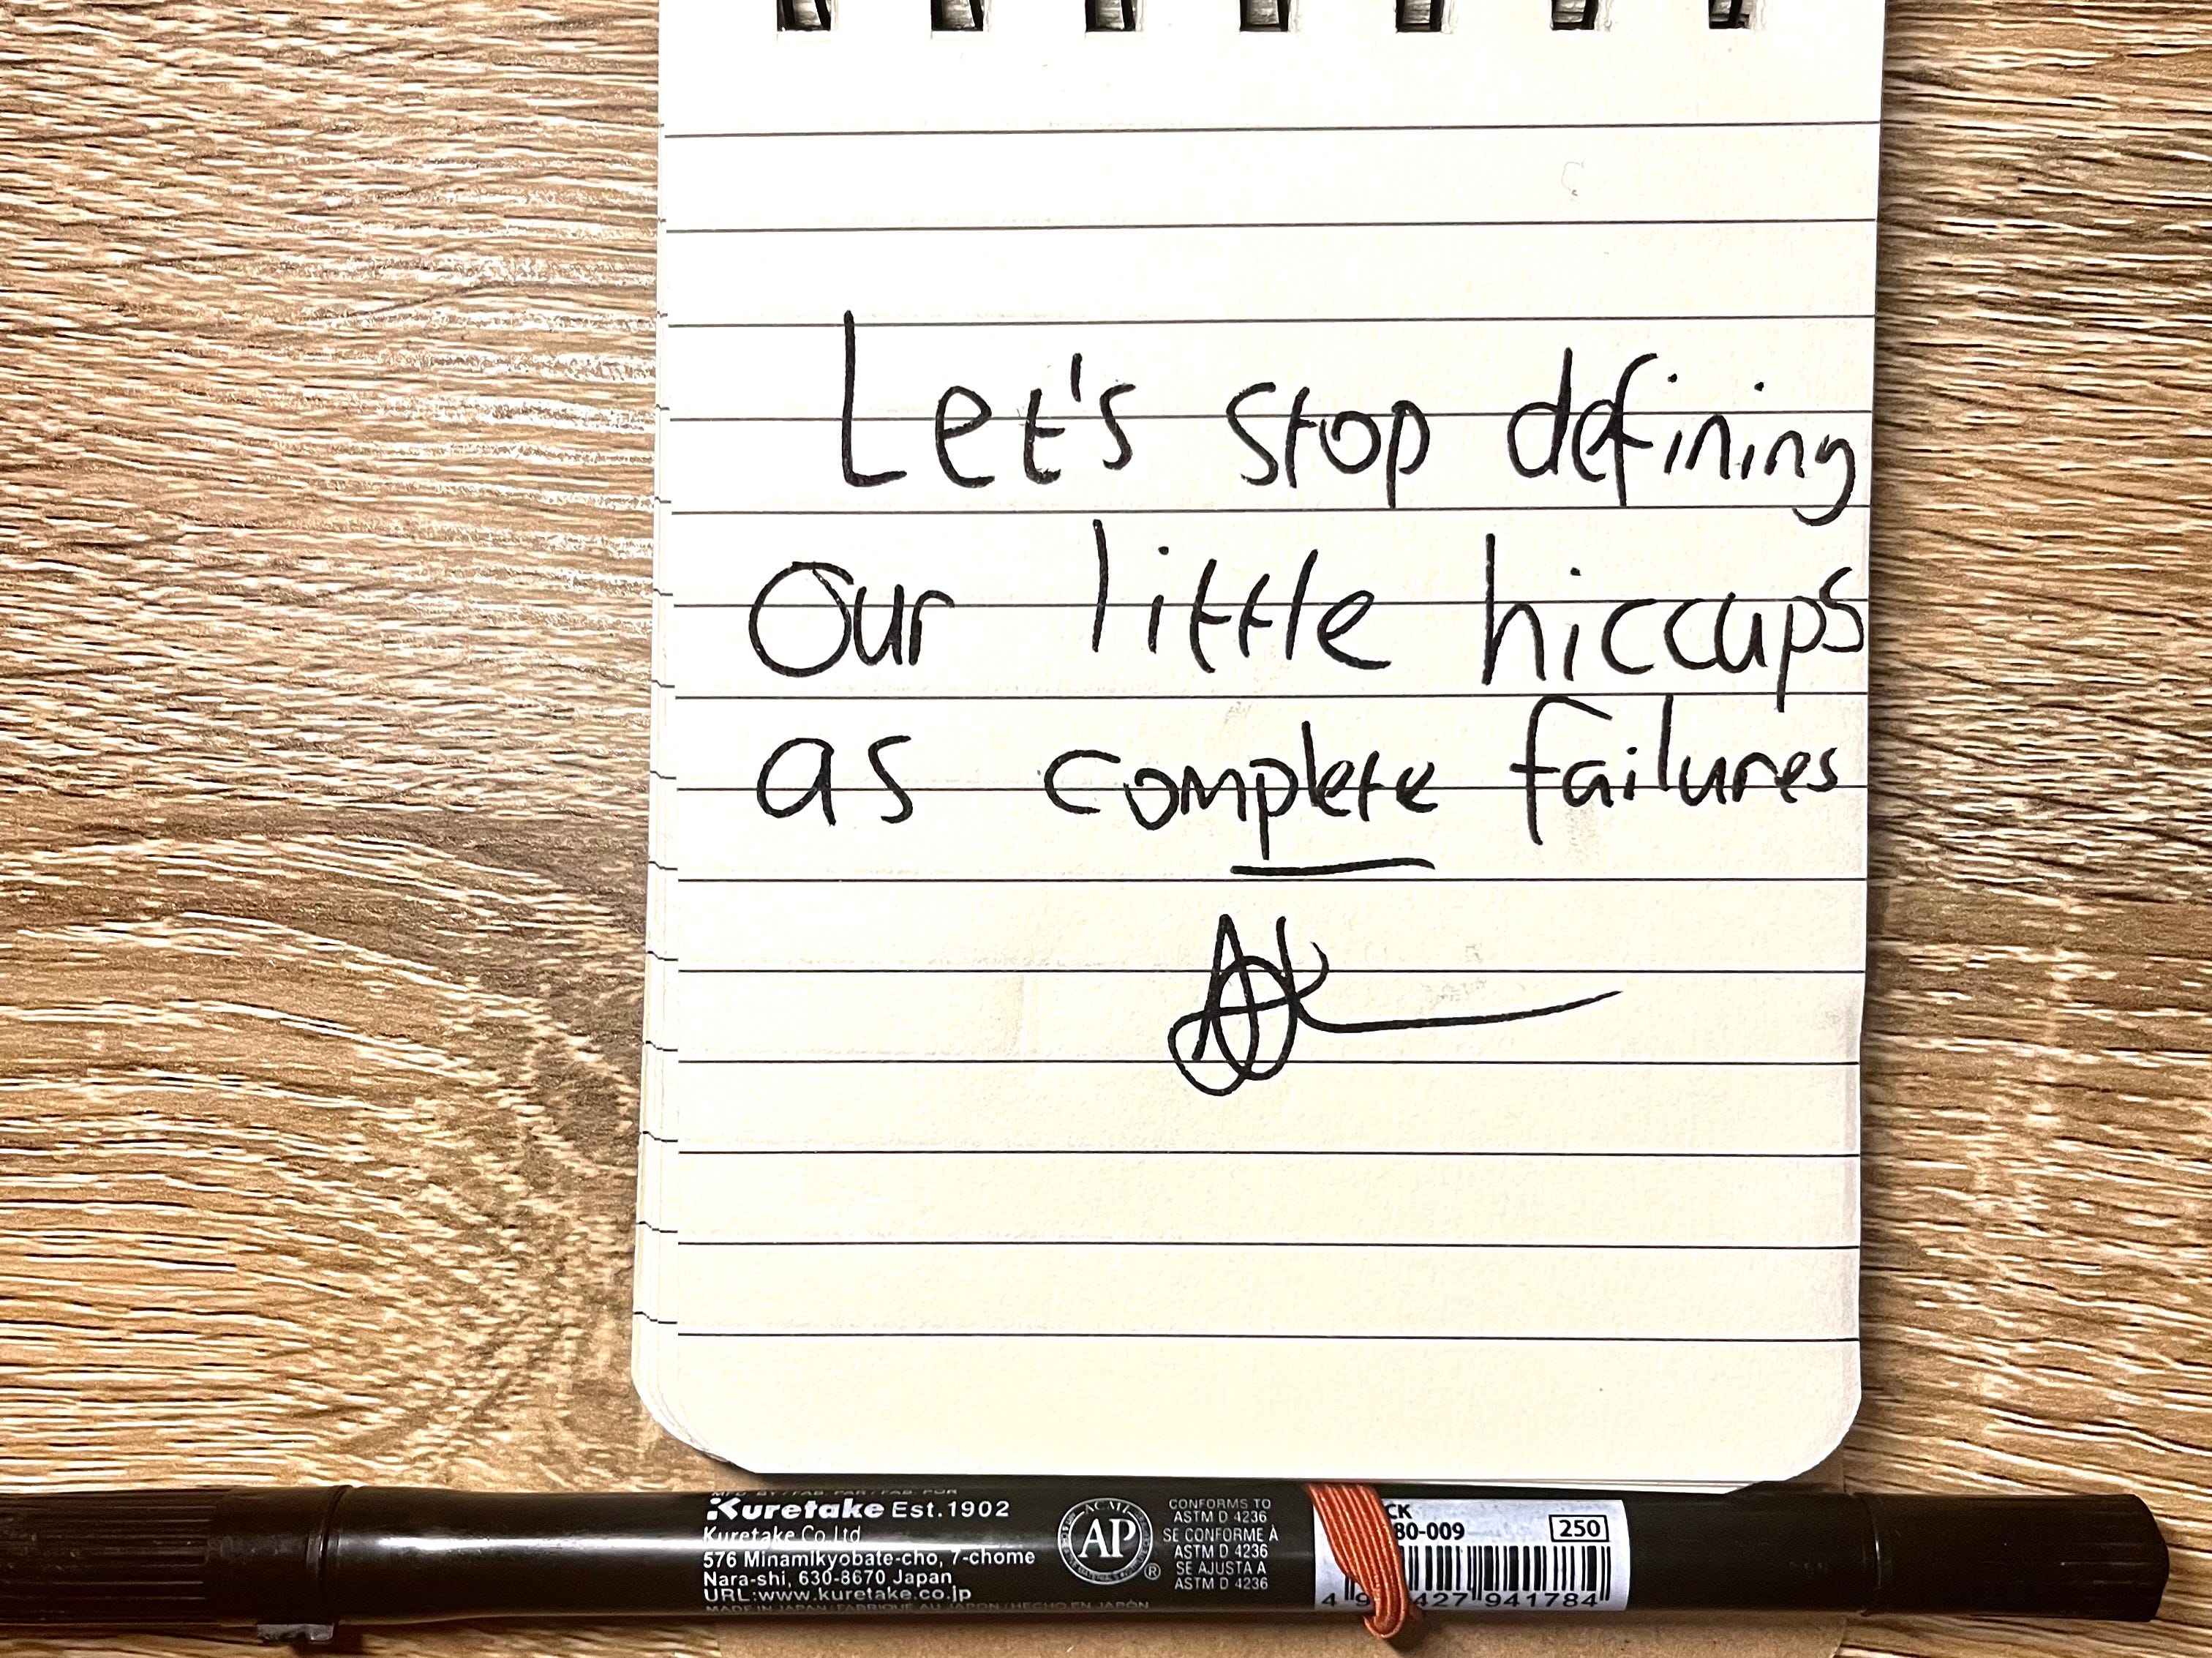 Let's stop defining
Our little hiccups
as complete failures
Kuretake Est.1902
Kuretake Co.Ltd.
576 Minamikyobate-cho, 7-chome
Nara-shi, 630-8670 Japan
URL:www.kuretake.co.jp
MADE IN JAPAN / FABRIQUÉ AU JAPON / HECHO EN JAPÓN
ACMI
AP
®
CONFORMS TO
ASTM D 4236
SE CONFORME À
ASTM D 4236
SE AJUSTA A
ASTM D 4236
CK
80-009
250
427 941784